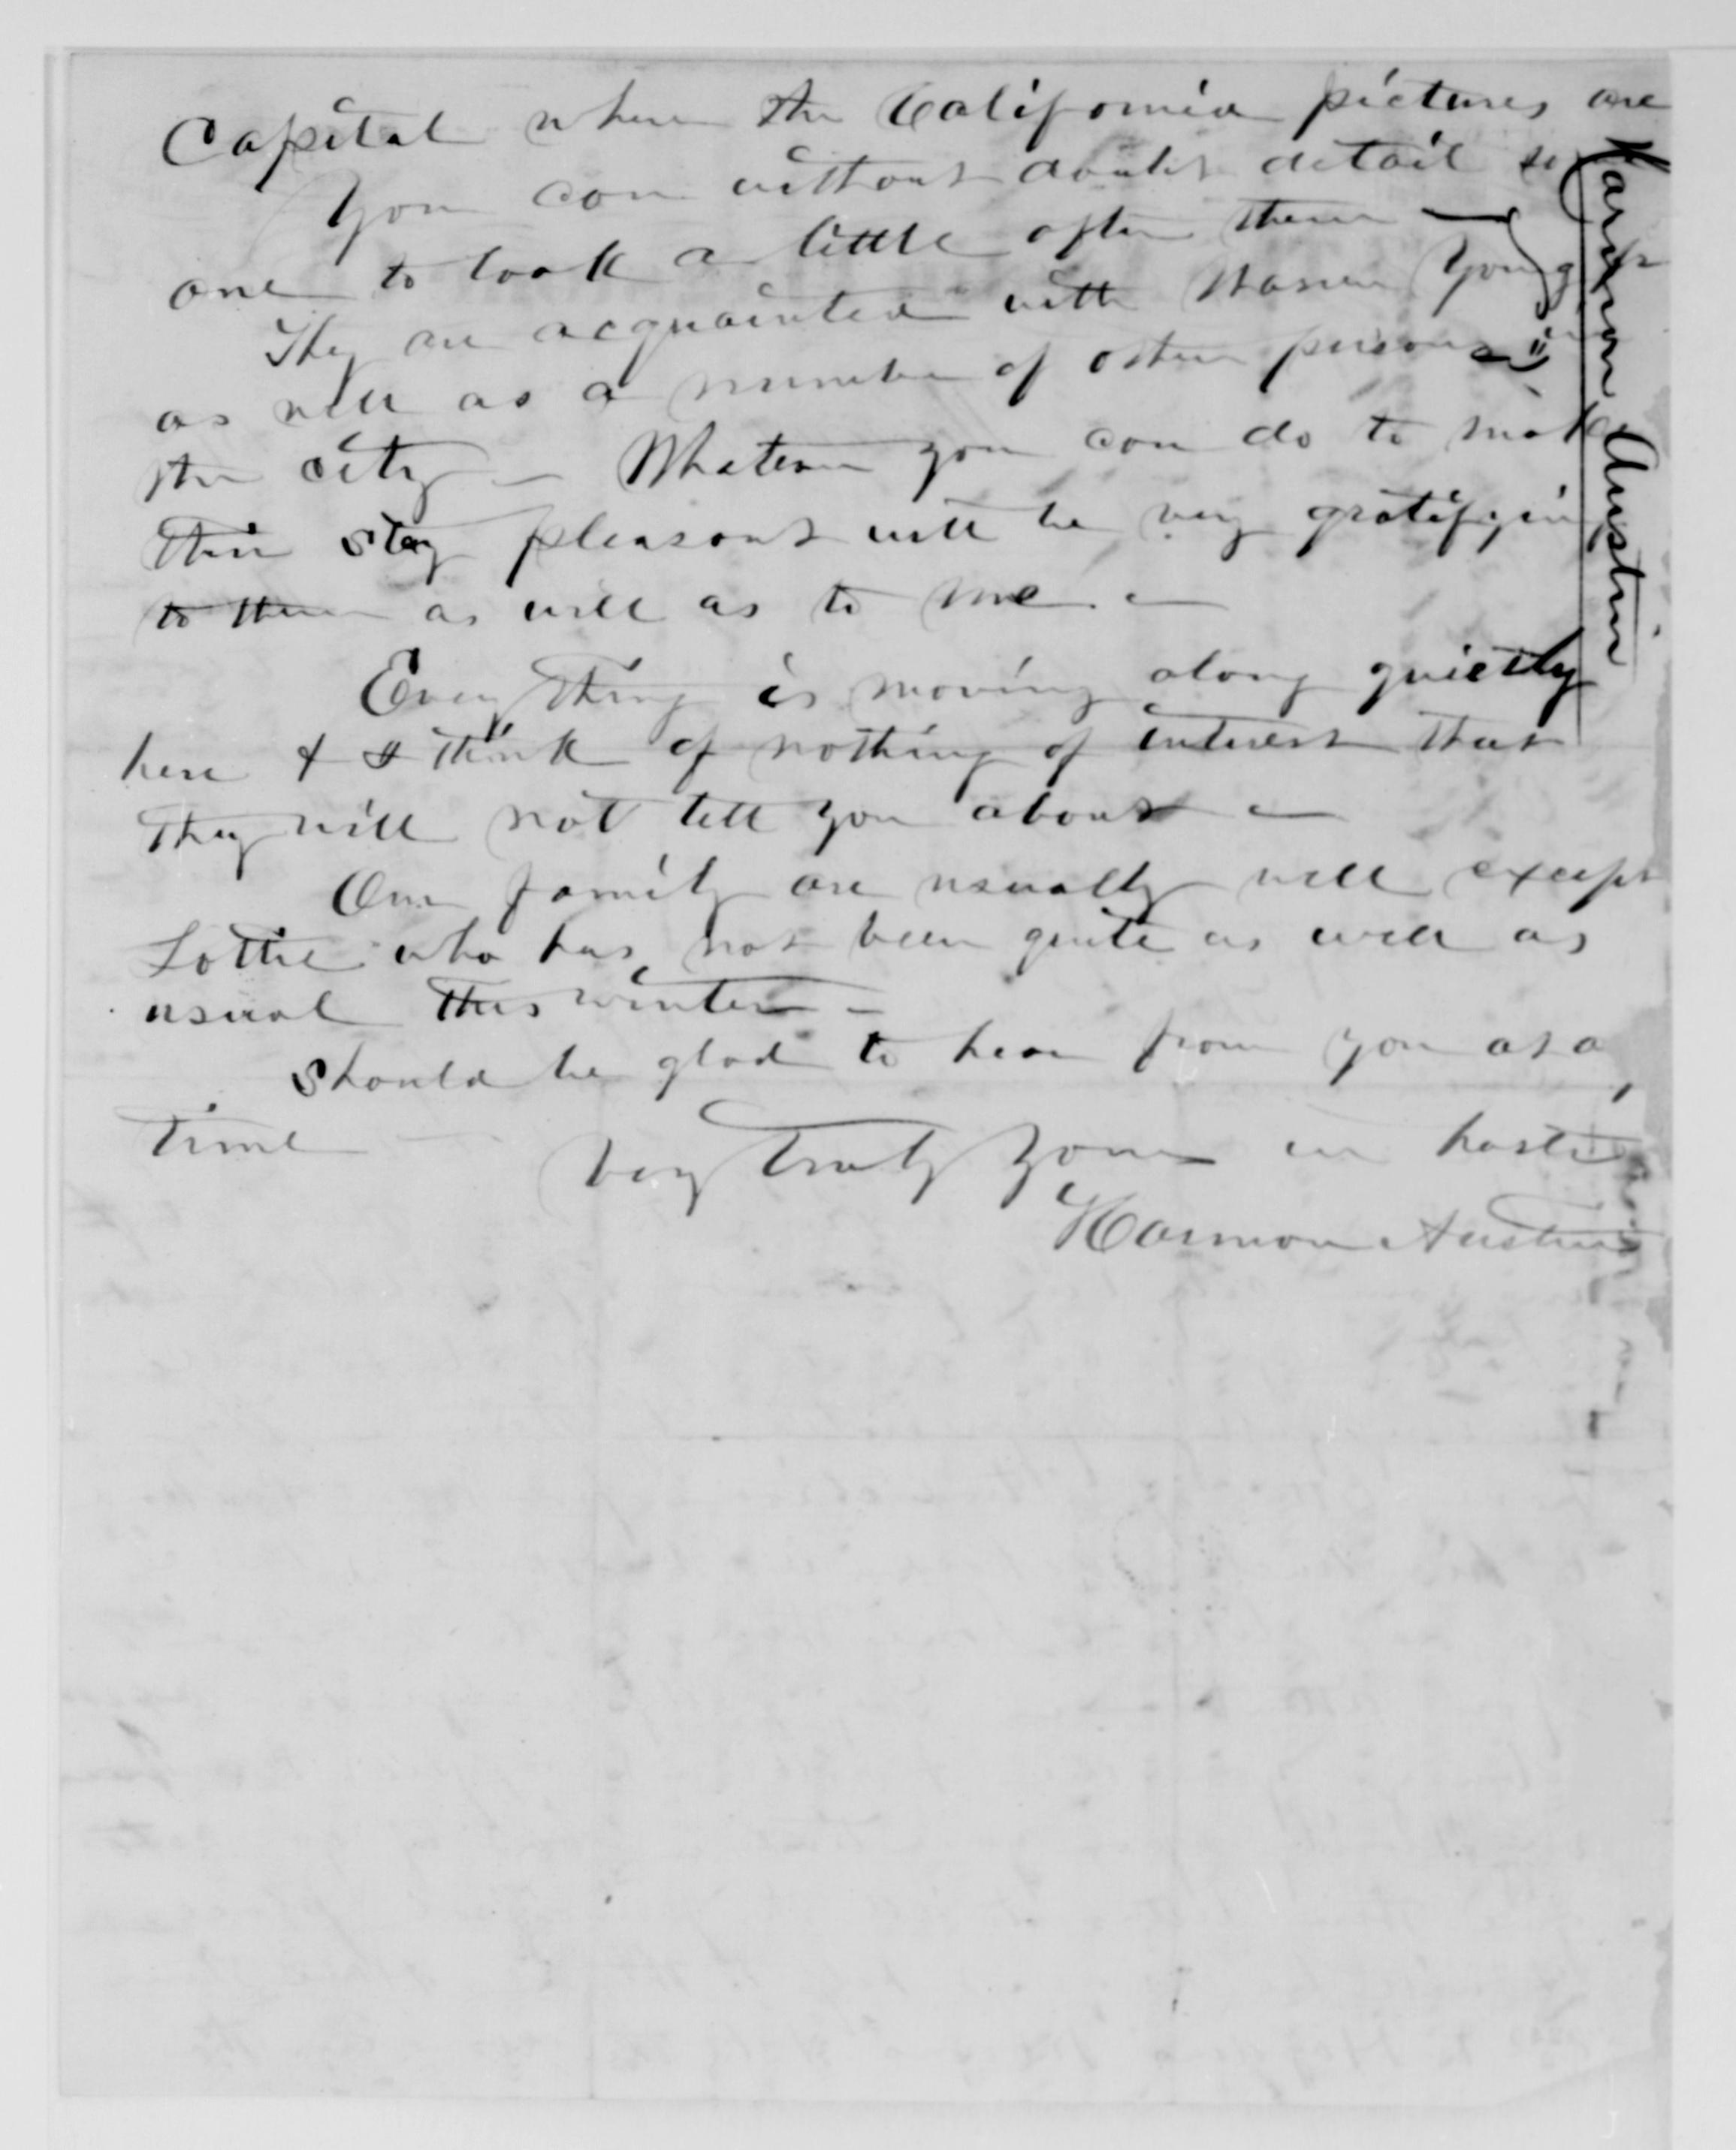 Capital where the California pictures are
You can without doubt detail some
one to look a little after them —
They are acquainted with Warren Young
as well as a number of other persons in
the city — Whatever you can do to make
their stay pleasant will be very gratifying
to them as well as to me. —
Every thing is moving along quietly
here & I think of nothing of interest that
they will not tell you about —
Our family are usually well except
Lottie who has not been quite as well as
usual this winter —
Should be glad to hear from you at a
time — Very Truly Yours in haste
Harmon Austin
Harmon Austin